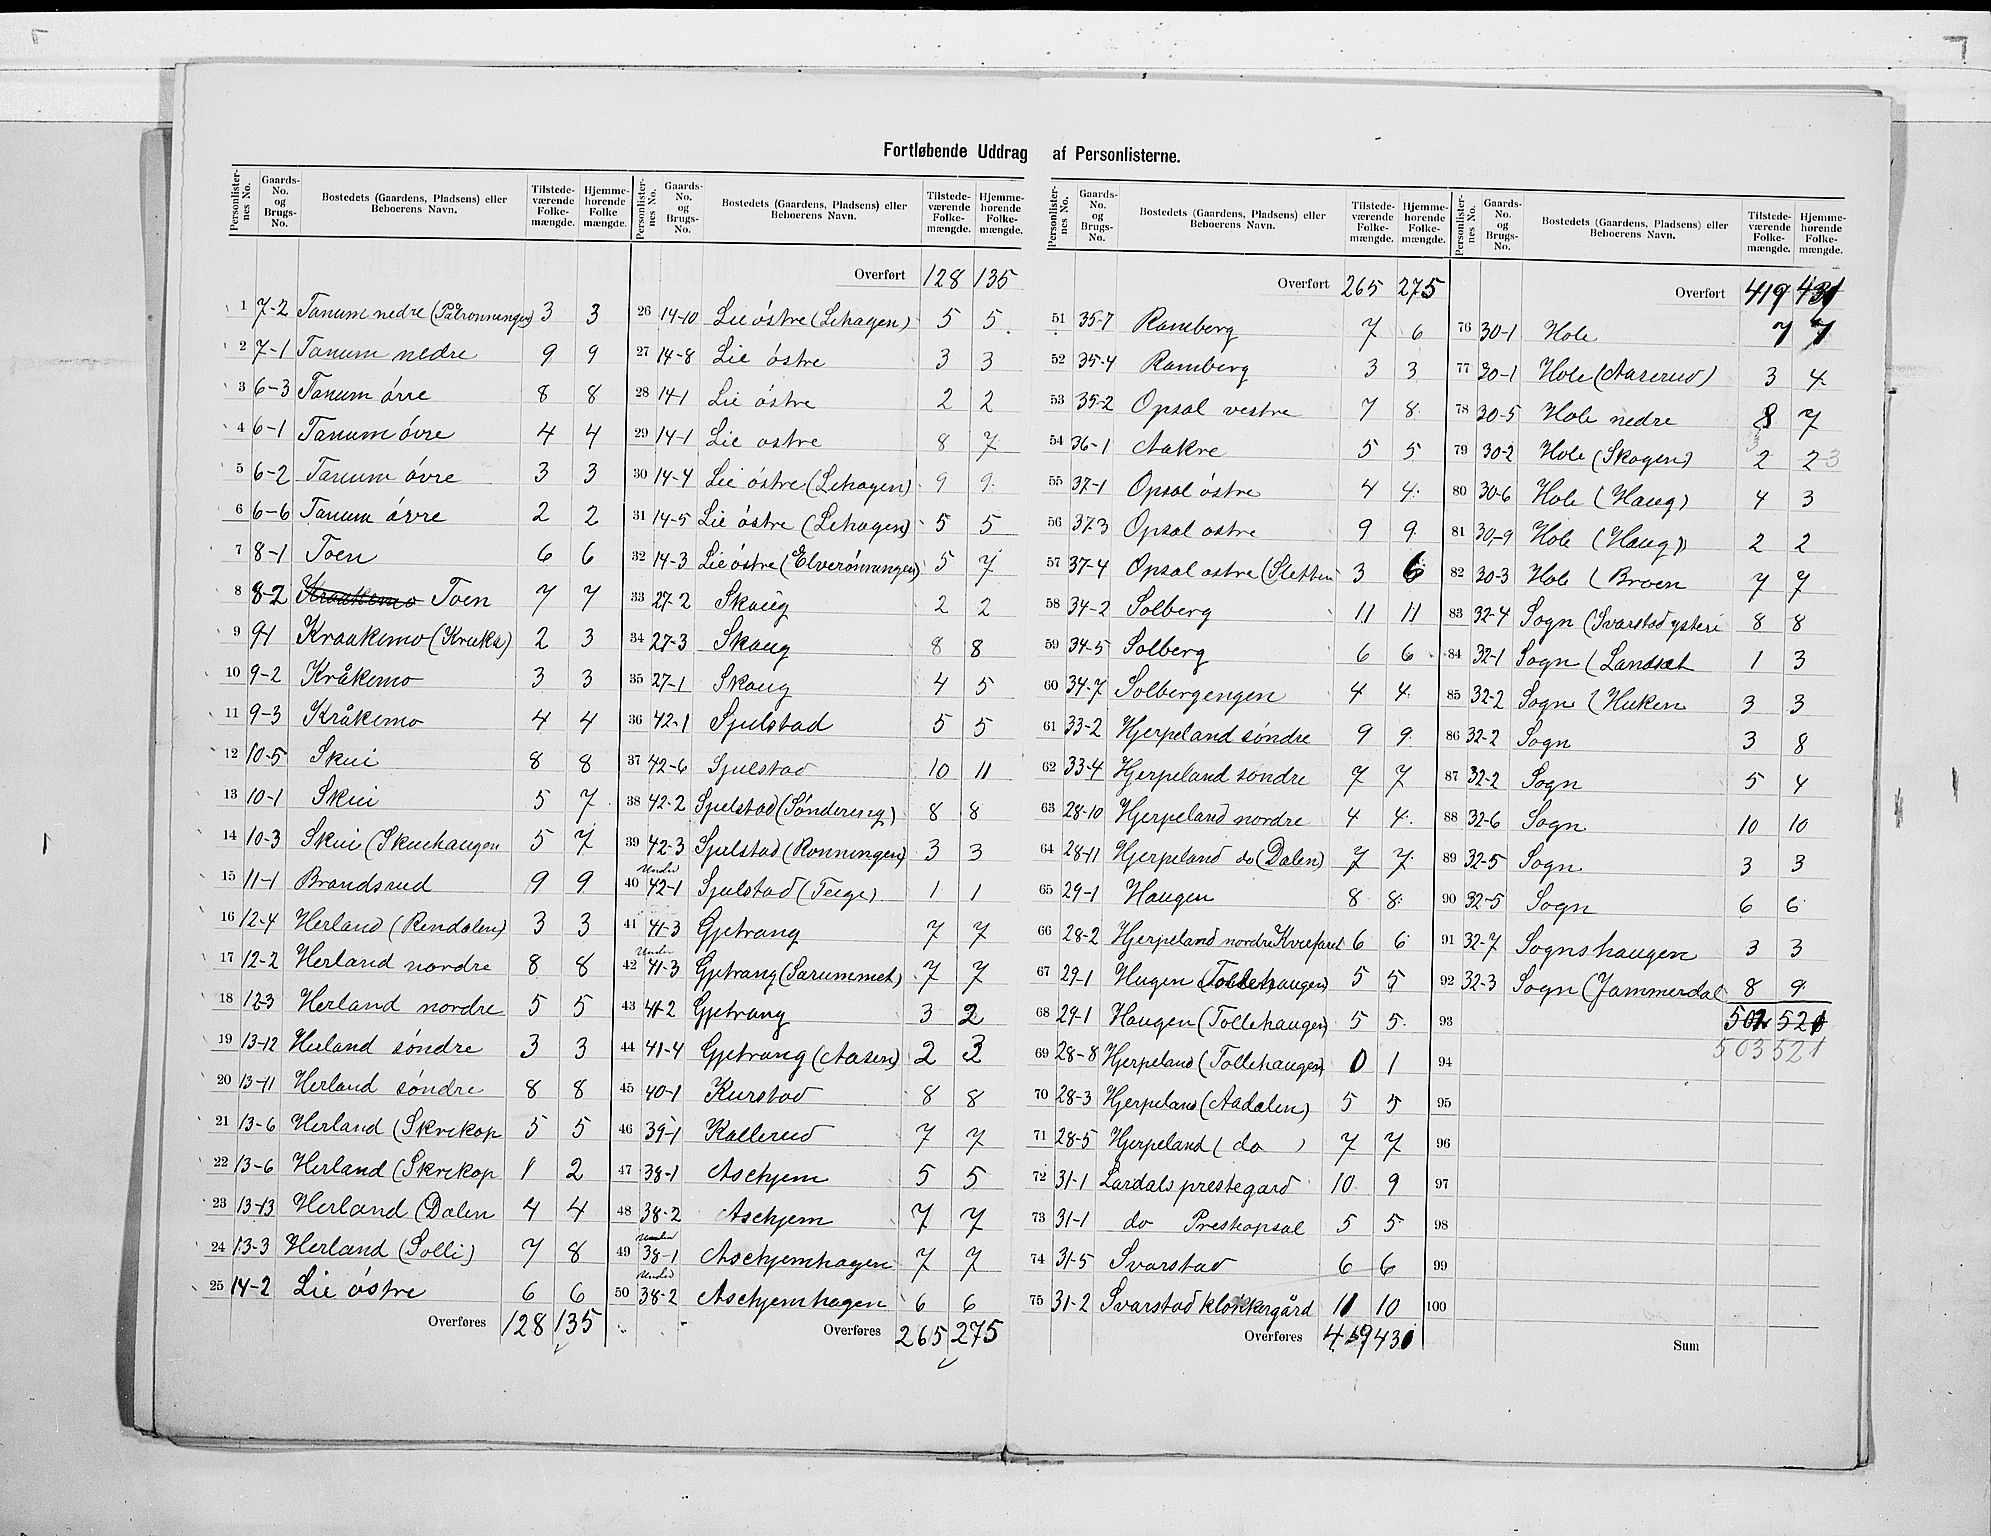 Fortløbende Uddrag af Personlisterne.
Personlister-nes No. Gaards-No. og Brugs-No. Bostedets (Gaardens, Pladsens) eller Beboerens Navn. Tilstede-værende Folke-mængde. Hjemme-hørende Folke mængde.
1 7-2 Tanum nedre (Pålrønningen) 3 3
2 7-1 Tanum nedre 9 9
3 6-3 Tanum øvre 8 8
4 6-1 Tanum øvre 4 4
5 6-2 Tanum øvre 3 3
6 6-6 Tanum øvre 2 2
7 8-1 Toen 6 6
8 8-2 Kraakemo Toen 7 7
9 9-1 Kraakemo (Kruka) 2 3
10 9-2 Kråkemo 3 3
11 9-3 Kråkemo 4 4
12 10-5 Skui 8 8
13 10-1 Skui 5 7
14 10-3 Skui (Skuehaugen 5 7
15 11-1 Brandsrud 9 9
16 12-4 Herland (Rendalen) 3 3
17 12-2 Herland nordre 8 8
18 12-3 Herland nordre 5 5
19 13-12 Herland søndre 3 3
20 13-11 Herland søndre 8 8
21 13-6 Herland (Skrikop 5 5
22 13-6 Herland (Skrikop 1 2
23 13-13 Herland (Dalen 4 4
24 13-3 Herland (Solli) 7 8
25 14-2 Lie østre 6 6
Overføres 128 135
Personlister-nes No. Gaards-No. og Brugs-No. Bostedets (Gaardens, Pladsens) eller Beboerens Navn. Tilstede-værende Folke-mængde. Hjemme-hørende Folke-mængde.
Overført 128 135
26 14-10 Lie østre (Lihagen) 5 5
27 14-8 Lie østre 3 3
28 14-1 Lie østre 2 2
29 14-1 Lie østre 8 7
30 14-4 Lie østre (Lihagen) 9 9
31 14-5 Lie østre (Lihagen) 5 5
32 14-3 Lie østre (Elverønningen) 5 7
33 27-2 Skaug 2 2
34 27-3 Skaug 8 8
35 27-1 Skaug 4 5
36 42-1 Sjulstad 5 5
37 42-6 Sjulstad 10 11
38 42-2 Sjulstad (Søndereng) 8 8
39 42-3 Sjulstad (Rønningen) 3 3
40 Under 42-1 Sjulstad (Teige) 1 1
41 41-3 Gjetrang 7 7
42 Under 41-3 Gjetrang (Sarummet) 7 7
43 41-2 Gjetrang 3 2
44 41-4 Gjetrang (Aasen) 2 3
45 40-1 Kurstad 8 8
46 39-1 Kallerud 7 7
47 38-1 Askjem 5 5
48 38-2 Askjem 7 7
49 Under 38-1 Askjemhagen 7 7
50 Under 38-2 Askjemhagen 6 6
Overføres 265 275
Personlister-nes No. Gaards-No. og Brugs-No. Bostedets (Gaardens, Pladsens) eller Beboerens Navn. Tilstede-værende Folke-mængde. Hjemme-hørende Folke-mængde.
Overført 265 275
51 35-7 Ramberg 7 6
52 35-4 Ramberg 3 3
53 35-2 Opsal vestre 7 8
54 36-1 Aakre 5 5
55 37-1 Opsal østre 4 4
56 37-3 Opsal østre 9 9
57 37-4 Opsal østre (Sletten 3 6
58 34-2 Solberg 11 11
59 34-5 Solberg 6 6
60 34-7 Solbergengen 4 4
61 33-2 Hjerpeland søndre 9 9
62 33-4 Hjerpeland søndre 7 7
63 28-10 Hjerpeland nordre 4 4
64 28-11 Hjerpeland do (Dalen) 7 7
65 29-1 Haugen 8 8
66 28-2 Hjerpeland nordre Kvefaret 6 6
67 29-1 Hugen (Tollehaugen) 5 5
68 29-1 Haugen (Tollehaugen) 5 5
69 28-8 Hjerpeland (Tollehaugen) 0 1
70 28-3 Hjerpeland (Aadalen) 5 5
71 28-5 Hjerpeland ( do ) 7 7
72 31-1 Lardals prestegard 10 9
73 31-1 do Prestopsal 5 5
74 31-5 Svarstad 6 6
75 31-2 Svarstad klokkergård 11 10
Overføres 419 431
Personlister-nes No. Gaards-No. og Brugs-No. Bostedets (Gaardens, Pladsens) eller Beboerens Navn. Tilstede-værende Folke-mængde. Hjemme-hørende Folke-mængde.
Overført 419 431
76 30-1 Hole 7 7
77 30-1 Hole (Aaserud) 3 4
78 30-5 Hole nedre 8 7
79 30-2 Hole (Skogen) 3 2 2 3
80 30-6 Hole (Haug) 4 3
81 30-9 Hole (Haug) 2 2
82 30-3 Hole (Broen 7 7
83 32-4 Sogn (Svarstad ysteri 8 8
84 32-1 Sogn (Landsæt 1 3
85 32-2 Sogn (Huken 3 3
86 32-2 Sogn 3 8
87 32-2 Sogn 5 4
88 32-6 Sogn 10 10
89 32-5 Sogn 3 3
90 32-5 Sogn 6 6
91 32-7 Sognshaugen 3 3
92 32-3 Sogn (Jammerdal 8 9
93 502 520
503 521
94
95
96
97
98
99
100
Sum